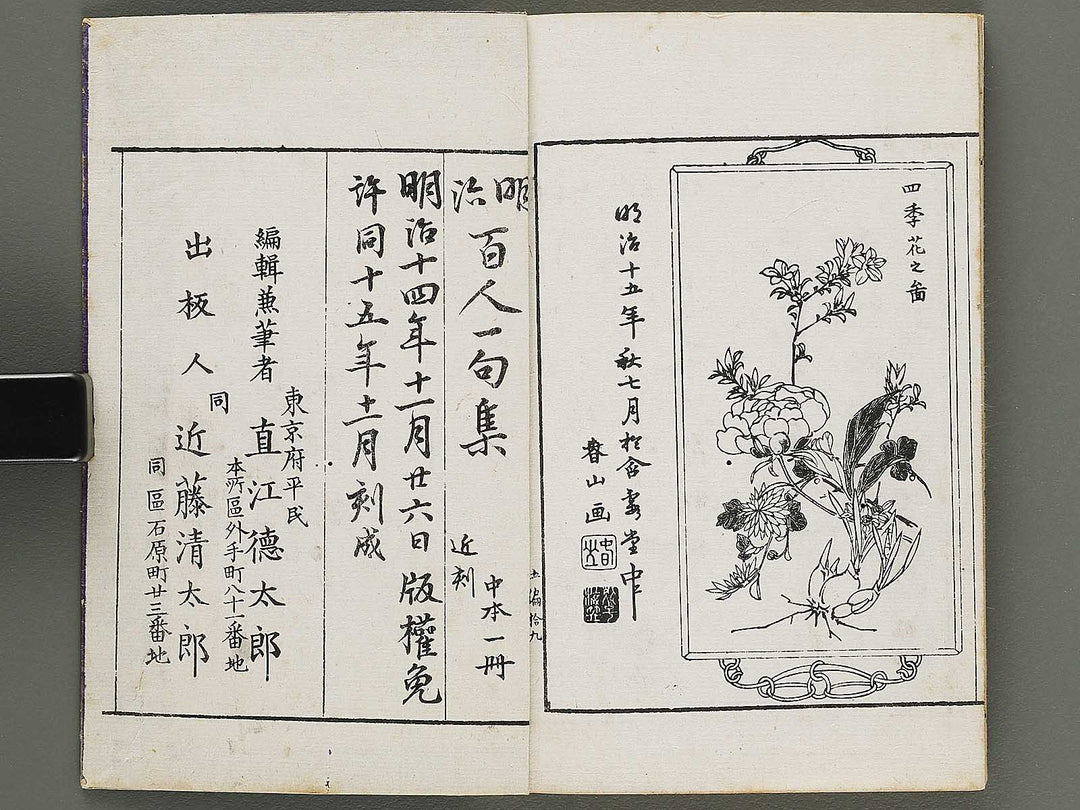 四季花之啚
明治十五年秋七月於含雪堂中
春山画
土編拾九
明治
百人一句集
近刻
中本一冊
明治十四年十一月廿六日版權免
許同十五年十一月刻成
編輯兼筆者
東京府平民
直江德太郎
本所區外手町八十一番地
出板人
同
近藤清太郎
同區石原町廿三番地